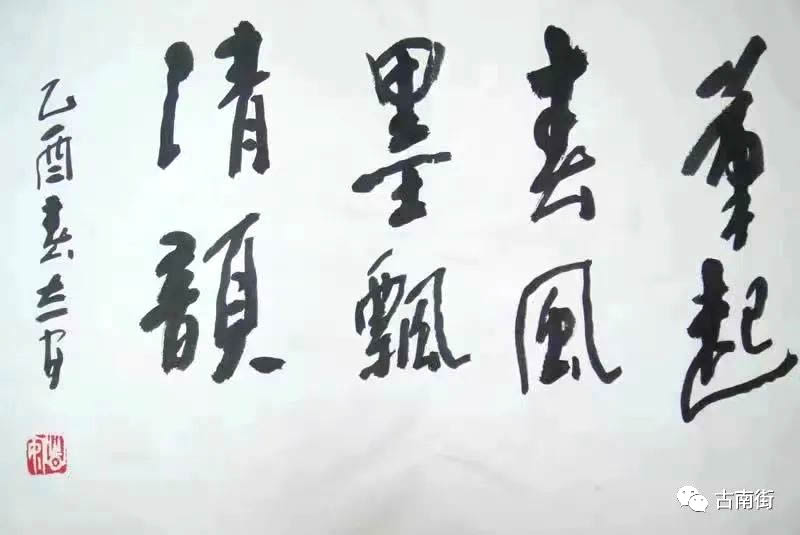 筆起
春風
墨飄
清韻
乙酉春
古南街